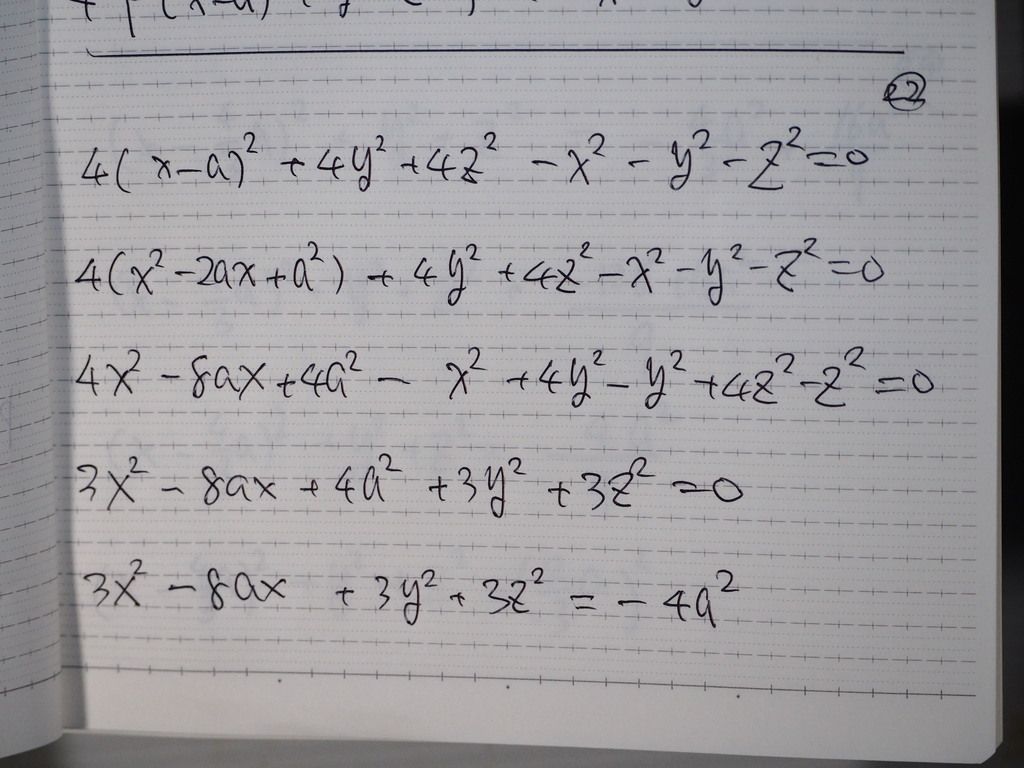 22
4(x-a)² + 4y² + 4z² - x² - y² - z² = 0
4(x² - 2ax + a²) + 4y² + 4z² - x² - y² - z² = 0
4x² - 8ax + 4a² - x² + 4y² - y² + 4z² - z² = 0
3x² - 8ax + 4a² + 3y² + 3z² = 0
3x² - 8ax + 3y² + 3z² = -4a²